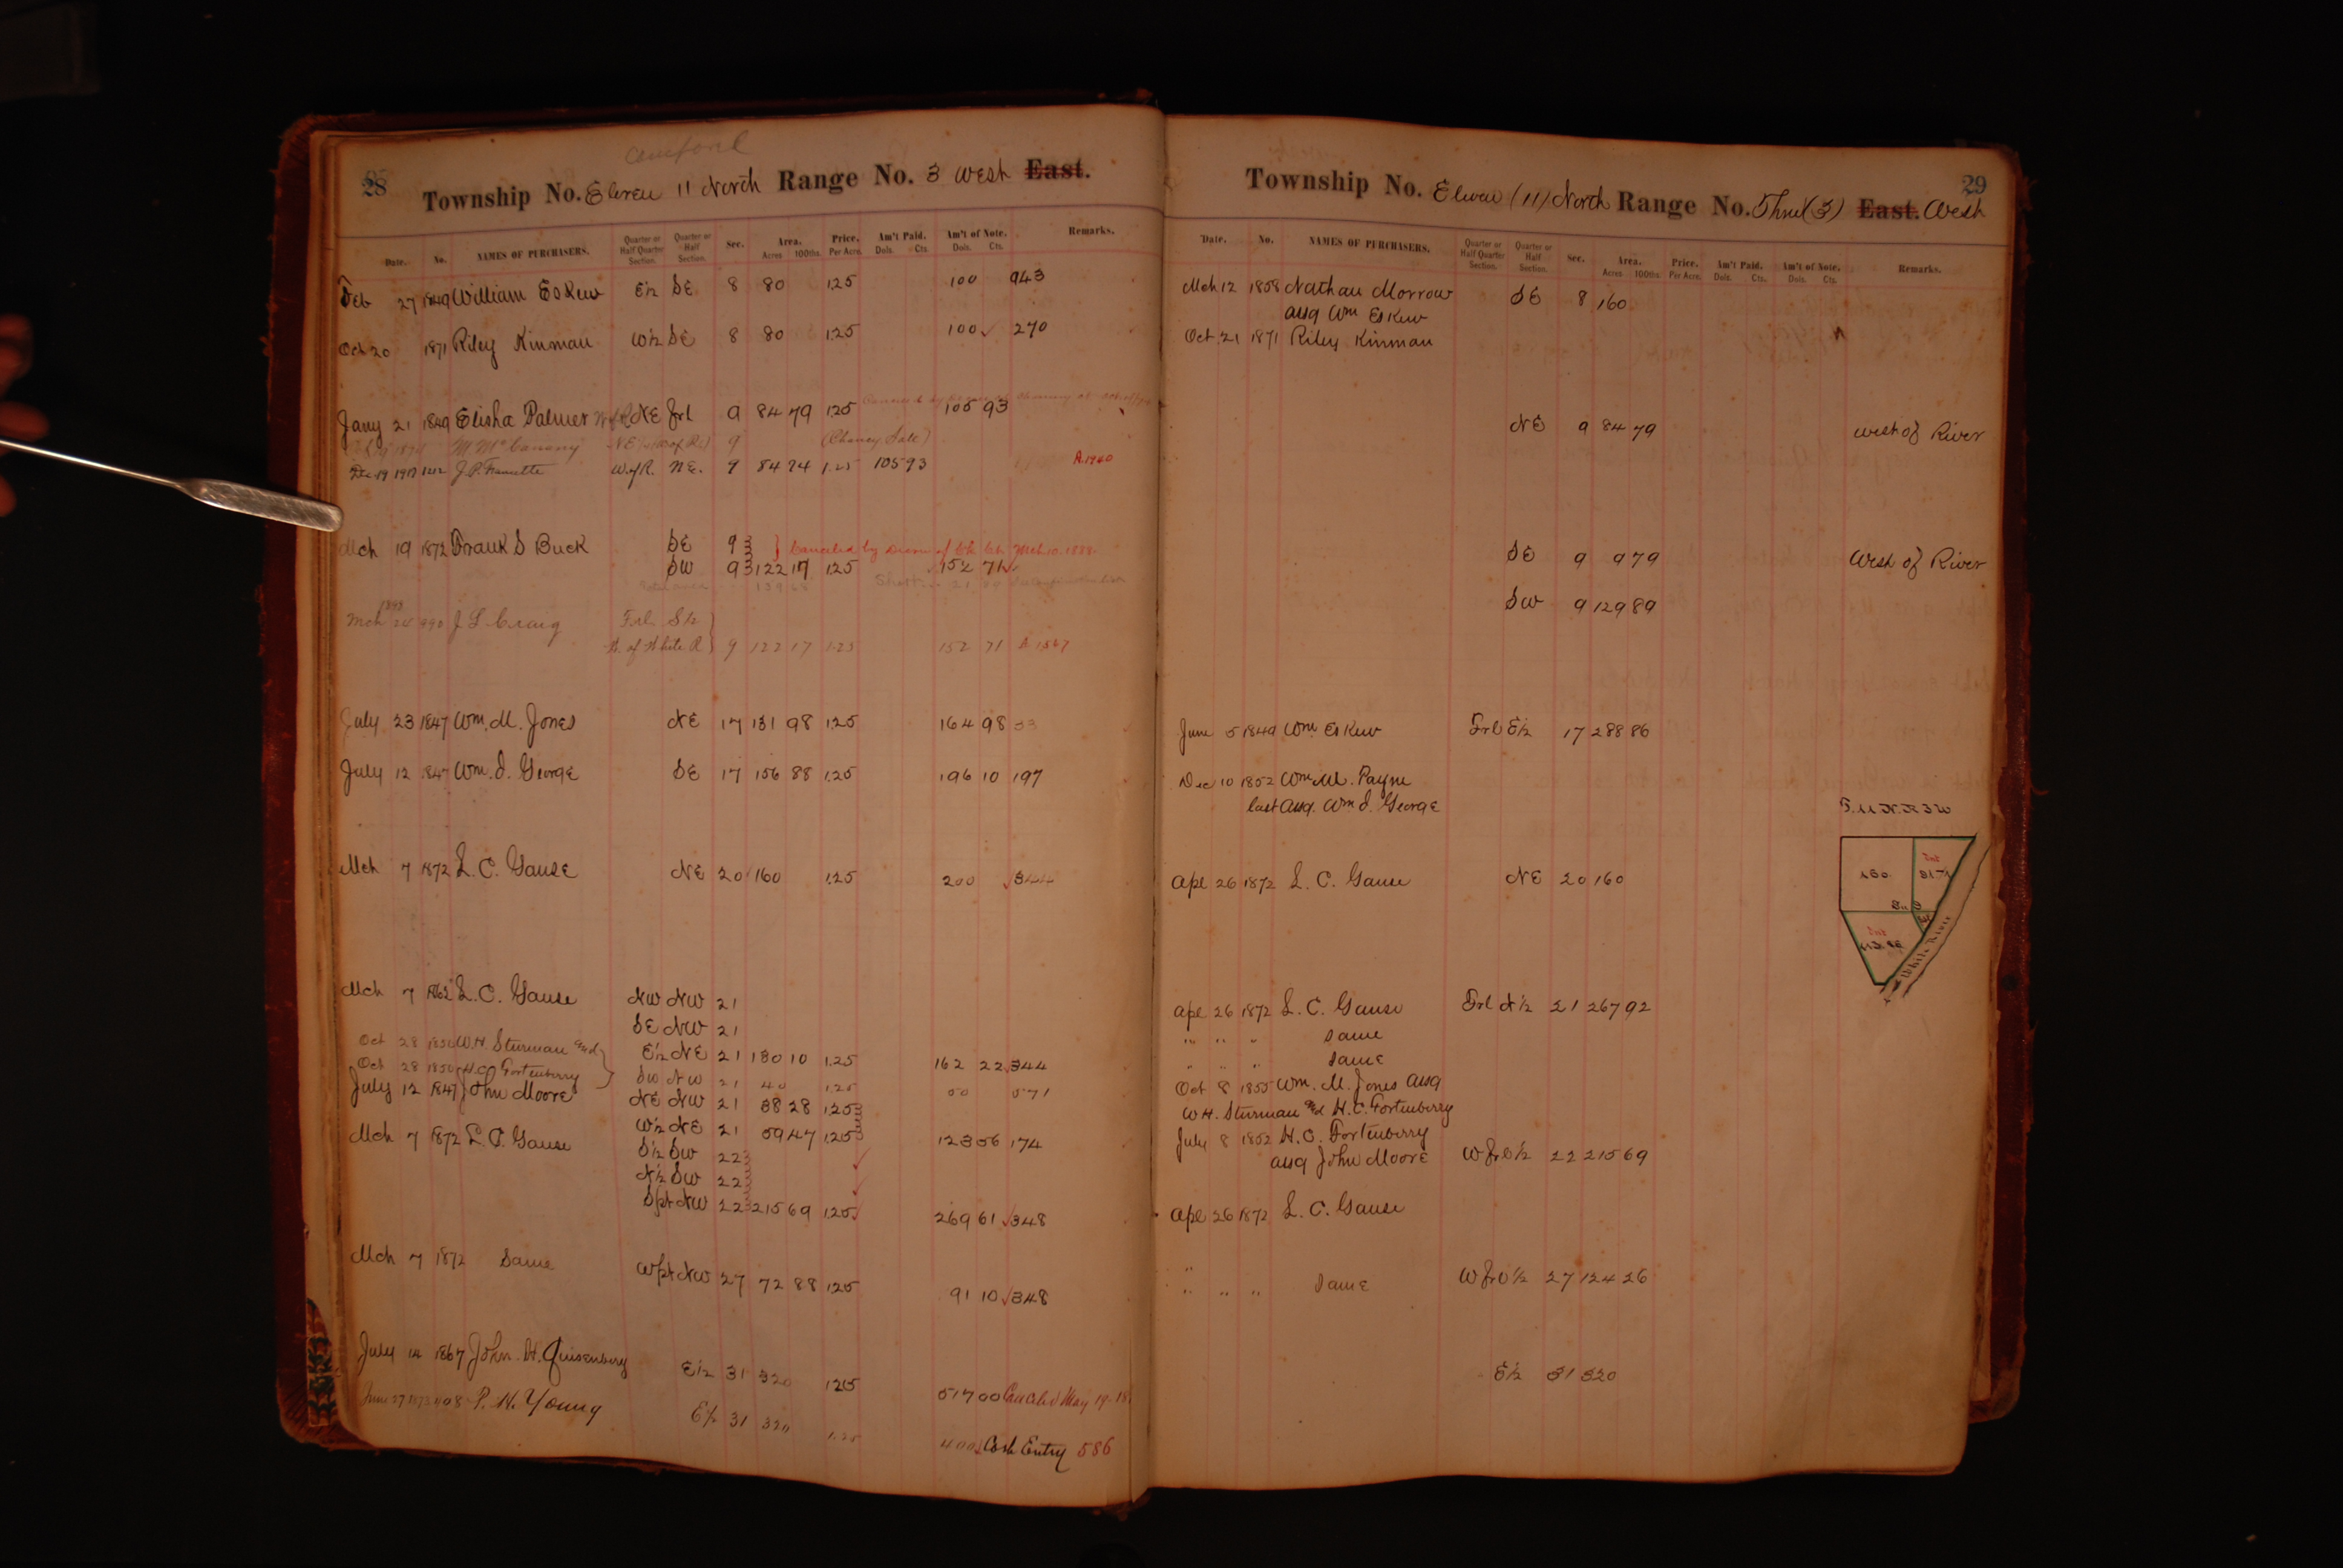 28
Township No. Eleven 11 North Range No. 3 West East.
Date. No. NAMES OF PURCHASERS. Quarter or Half Quarter Section. Quarter or Half Section. Sec. Area. Acres 100ths. Price. Per Acre. Am't Paid. Dols. Cts. Am't of Note. Dols. Cts. Remarks.
Feb 27 1849 William EsKew E½ SE 8 80 1.25 100 943
Oct 20 1871 Riley Kinman W½ SE 8 80 1.25 100 270
Jany 21 1849 Elisha Palmer NE frl 9 84 79 1.25 105 93
NE 9 (Chancy Sale)
Dec 19 W of R. N.E. 9 84 74 1.25 105 93 A.1940
Mch 19 1872 Frank S Buck SE 9 Canceled by Decree of Ch. Ct. Mch. 10. 1888.
SW 9 122 17 1.25 152 71
1898
Mch 24 990 J L Craig Frl. S½
N. of White R 9 122 17 1.25 152 71 A 1567
July 23 1847 Wm. M. Jones NE 17 131 98 1.25 164 98 33
July 12 1847 Wm. S. George SE 17 156 88 1.25 196 10 197
Mch 7 1872 L. C. Gause NE 20 160 1.25 200 344
Mch 7 1862 L. C. Gause NW NW 21
SE NW 21
Oct 28 1850 W. H. Sturman and E½ NE 21 130 10 1.25 162 22 344
Oct 28 1850 H. C. Fortenberry SW NW 21 40 1.25 50 571
July 12 1847 John Moore NE NW 21 38 28 1.25
W½ NE 21 59 47 1.25 123 06 174
Mch 7 1872 L. C. Gause S½ SW 22
N½ SW 22
Spt NW 22 215 69 1.25 269 61 348
Mch 7 1872 Same Wpt NW 27 72 88 1.25 91 10 348
July 14 1867 John H. Quisenberry E½ 31 320 1.25 517 00 Canceled May 19-18
June 27 1873 P. H. Young E½ 31 320 1.25 400 Cash Entry 586
29
Township No. Eleven (11) North Range No. Three (3) East. West
Date. No. NAMES OF PURCHASERS. Quarter or Half Quarter Section. Quarter or Half Section. Sec. Area. Acres 100ths. Price. Per Acre. Am't Paid. Dols. Cts. Am't of Note. Dols. Cts. Remarks.
Mch 12 1858 Nathan Morrow SE 8 160
assg Wm EsKew
Oct 21 1871 Riley Kinman
NE 9 84 79 west of River
SE 9 9 79 West of River
SW 9 129 89
June 5 1849 Wm EsKew Frl E½ 17 288 86
Dec 10 1852 Wm M. Payne
last assg. Wm S. George
T. 11 N. R 3 W
160
White River
Ape 26 1872 L. C. Gause NE 20 160
Ape 26 1872 L. C. Gause Frl N½ 21 267 92
" " " Same
" " " Same
Oct 8 1855 Wm. M. Jones assg
W H. Sturman and H. C. Fortenberry
July 8 1852 H. C. Fortenberry
assg John Moore W frl ½ 22 215 69
Ape 26 1872 L. C. Gause
" " " Same W frl ½ 27 124 26
E½ 31 320